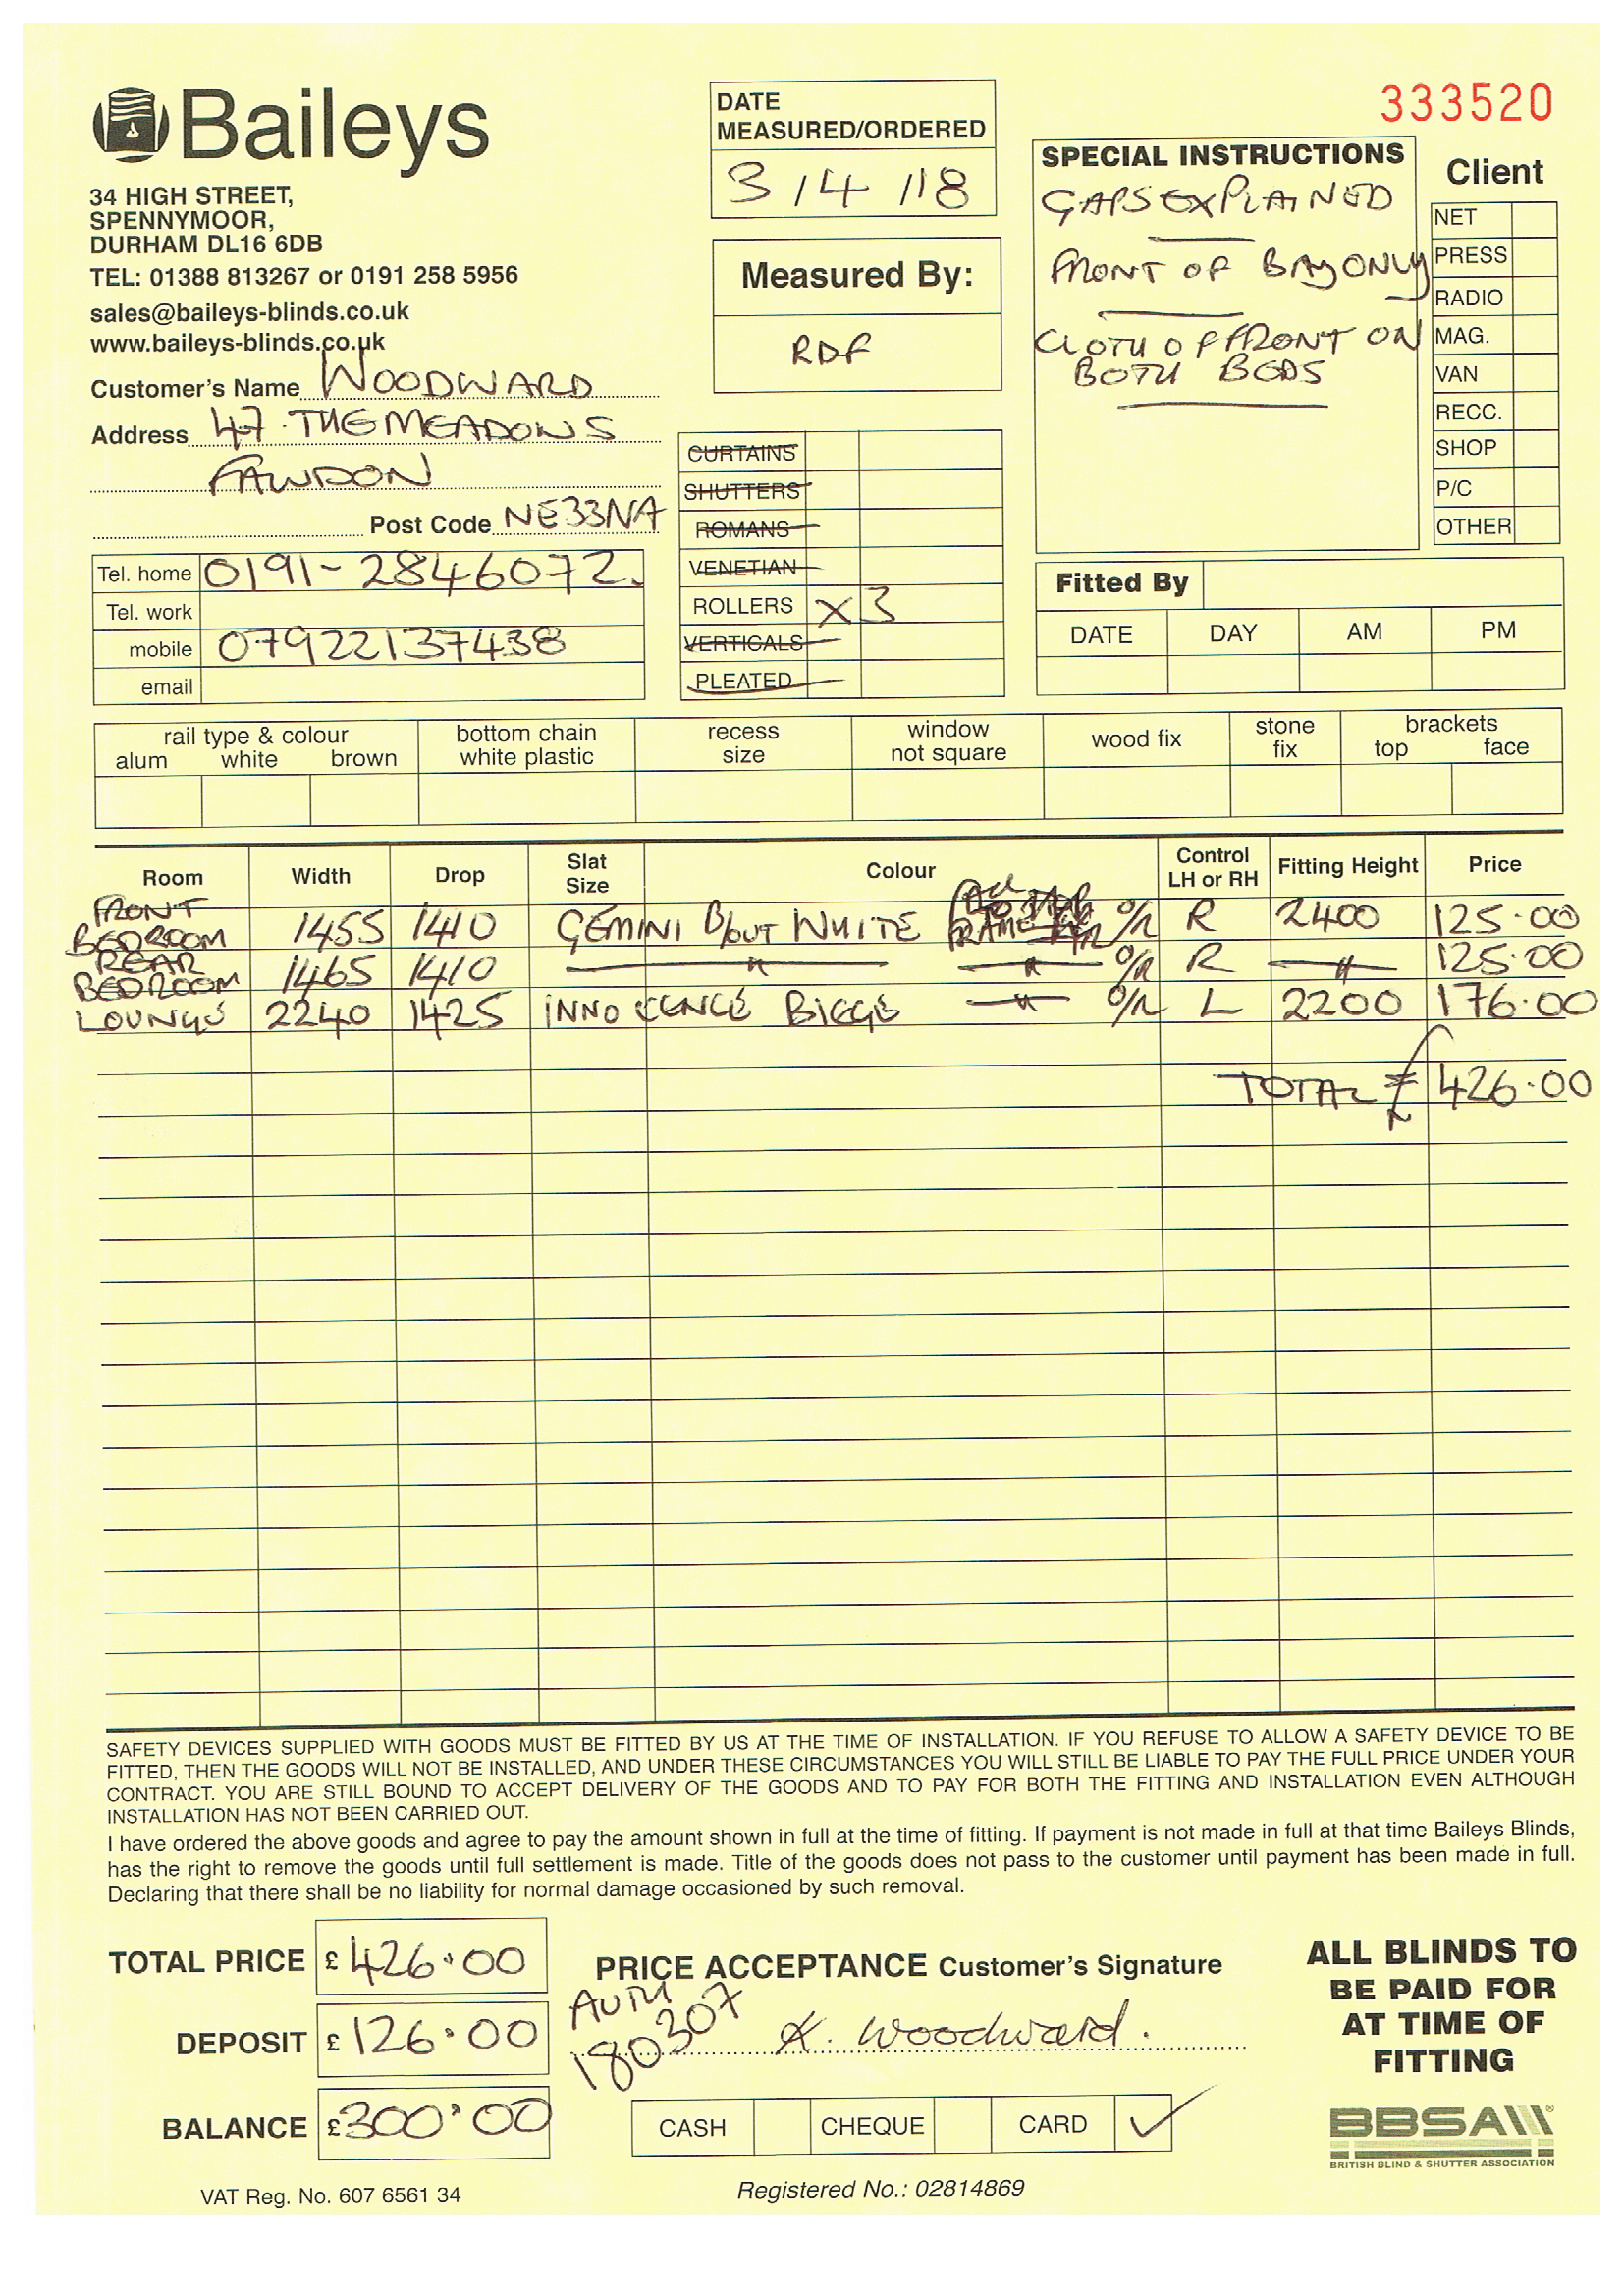 Baileys
34 HIGH STREET,
SPENNYMOOR,
DURHAM DL16 6DB
TEL: 01388 813267 or 0191 258 5956
sales@baileys-blinds.co.uk
www.baileys-blinds.co.uk
Customer's Name WOODWARD
Address 47 THE MEADOWS
FAWDON
Post Code NE33NA
Tel. home 0191-2846072.
Tel. work
mobile 07922137438
email
DATE
MEASURED/ORDERED
3/4/18
Measured By:
RDF
CURTAINS
SHUTTERS
ROMANS
VENETIAN
ROLLERS X3
VERTICALS
PLEATED
333520
SPECIAL INSTRUCTIONS
GAPS EXPLAINED
FRONT OF BAY ONLY
CLOTH OF FRONT ON
BOTH BEDS
Client
NET
PRESS
RADIO
MAG.
VAN
RECC.
SHOP
P/C
OTHER
Fitted By
DATE DAY AM PM
rail type & colour bottom chain recess window wood fix stone brackets
alum white brown white plastic size not square fix top face
Room Width Drop Slat Size Colour Control LH or RH Fitting Height Price
FRONT BEDROOM 1455 1410 GEMINI B/OUT WHITE FRAME O/R R 2400 125.00
REAR BEDROOM 1465 1410 " " O/R R " 125.00
LOUNGE 2240 1425 INNOCENCE BIEGE " O/R L 2200 176.00
TOTAL £ 426.00
SAFETY DEVICES SUPPLIED WITH GOODS MUST BE FITTED BY US AT THE TIME OF INSTALLATION. IF YOU REFUSE TO ALLOW A SAFETY DEVICE TO BE
FITTED, THEN THE GOODS WILL NOT BE INSTALLED, AND UNDER THESE CIRCUMSTANCES YOU WILL STILL BE LIABLE TO PAY THE FULL PRICE UNDER YOUR
CONTRACT. YOU ARE STILL BOUND TO ACCEPT DELIVERY OF THE GOODS AND TO PAY FOR BOTH THE FITTING AND INSTALLATION EVEN ALTHOUGH
INSTALLATION HAS NOT BEEN CARRIED OUT.
I have ordered the above goods and agree to pay the amount shown in full at the time of fitting. If payment is not made in full at that time Baileys Blinds,
has the right to remove the goods until full settlement is made. Title of the goods does not pass to the customer until payment has been made in full.
Declaring that there shall be no liability for normal damage occasioned by such removal.
TOTAL PRICE £ 426.00
DEPOSIT £ 126.00
BALANCE £ 300.00
PRICE ACCEPTANCE Customer's Signature
AUTH
180307
K. Woodward.
CASH CHEQUE CARD ✓
ALL BLINDS TO
BE PAID FOR
AT TIME OF
FITTING
BBSA
BRITISH BLIND & SHUTTER ASSOCIATION
VAT Reg. No. 607 6561 34
Registered No.: 02814869